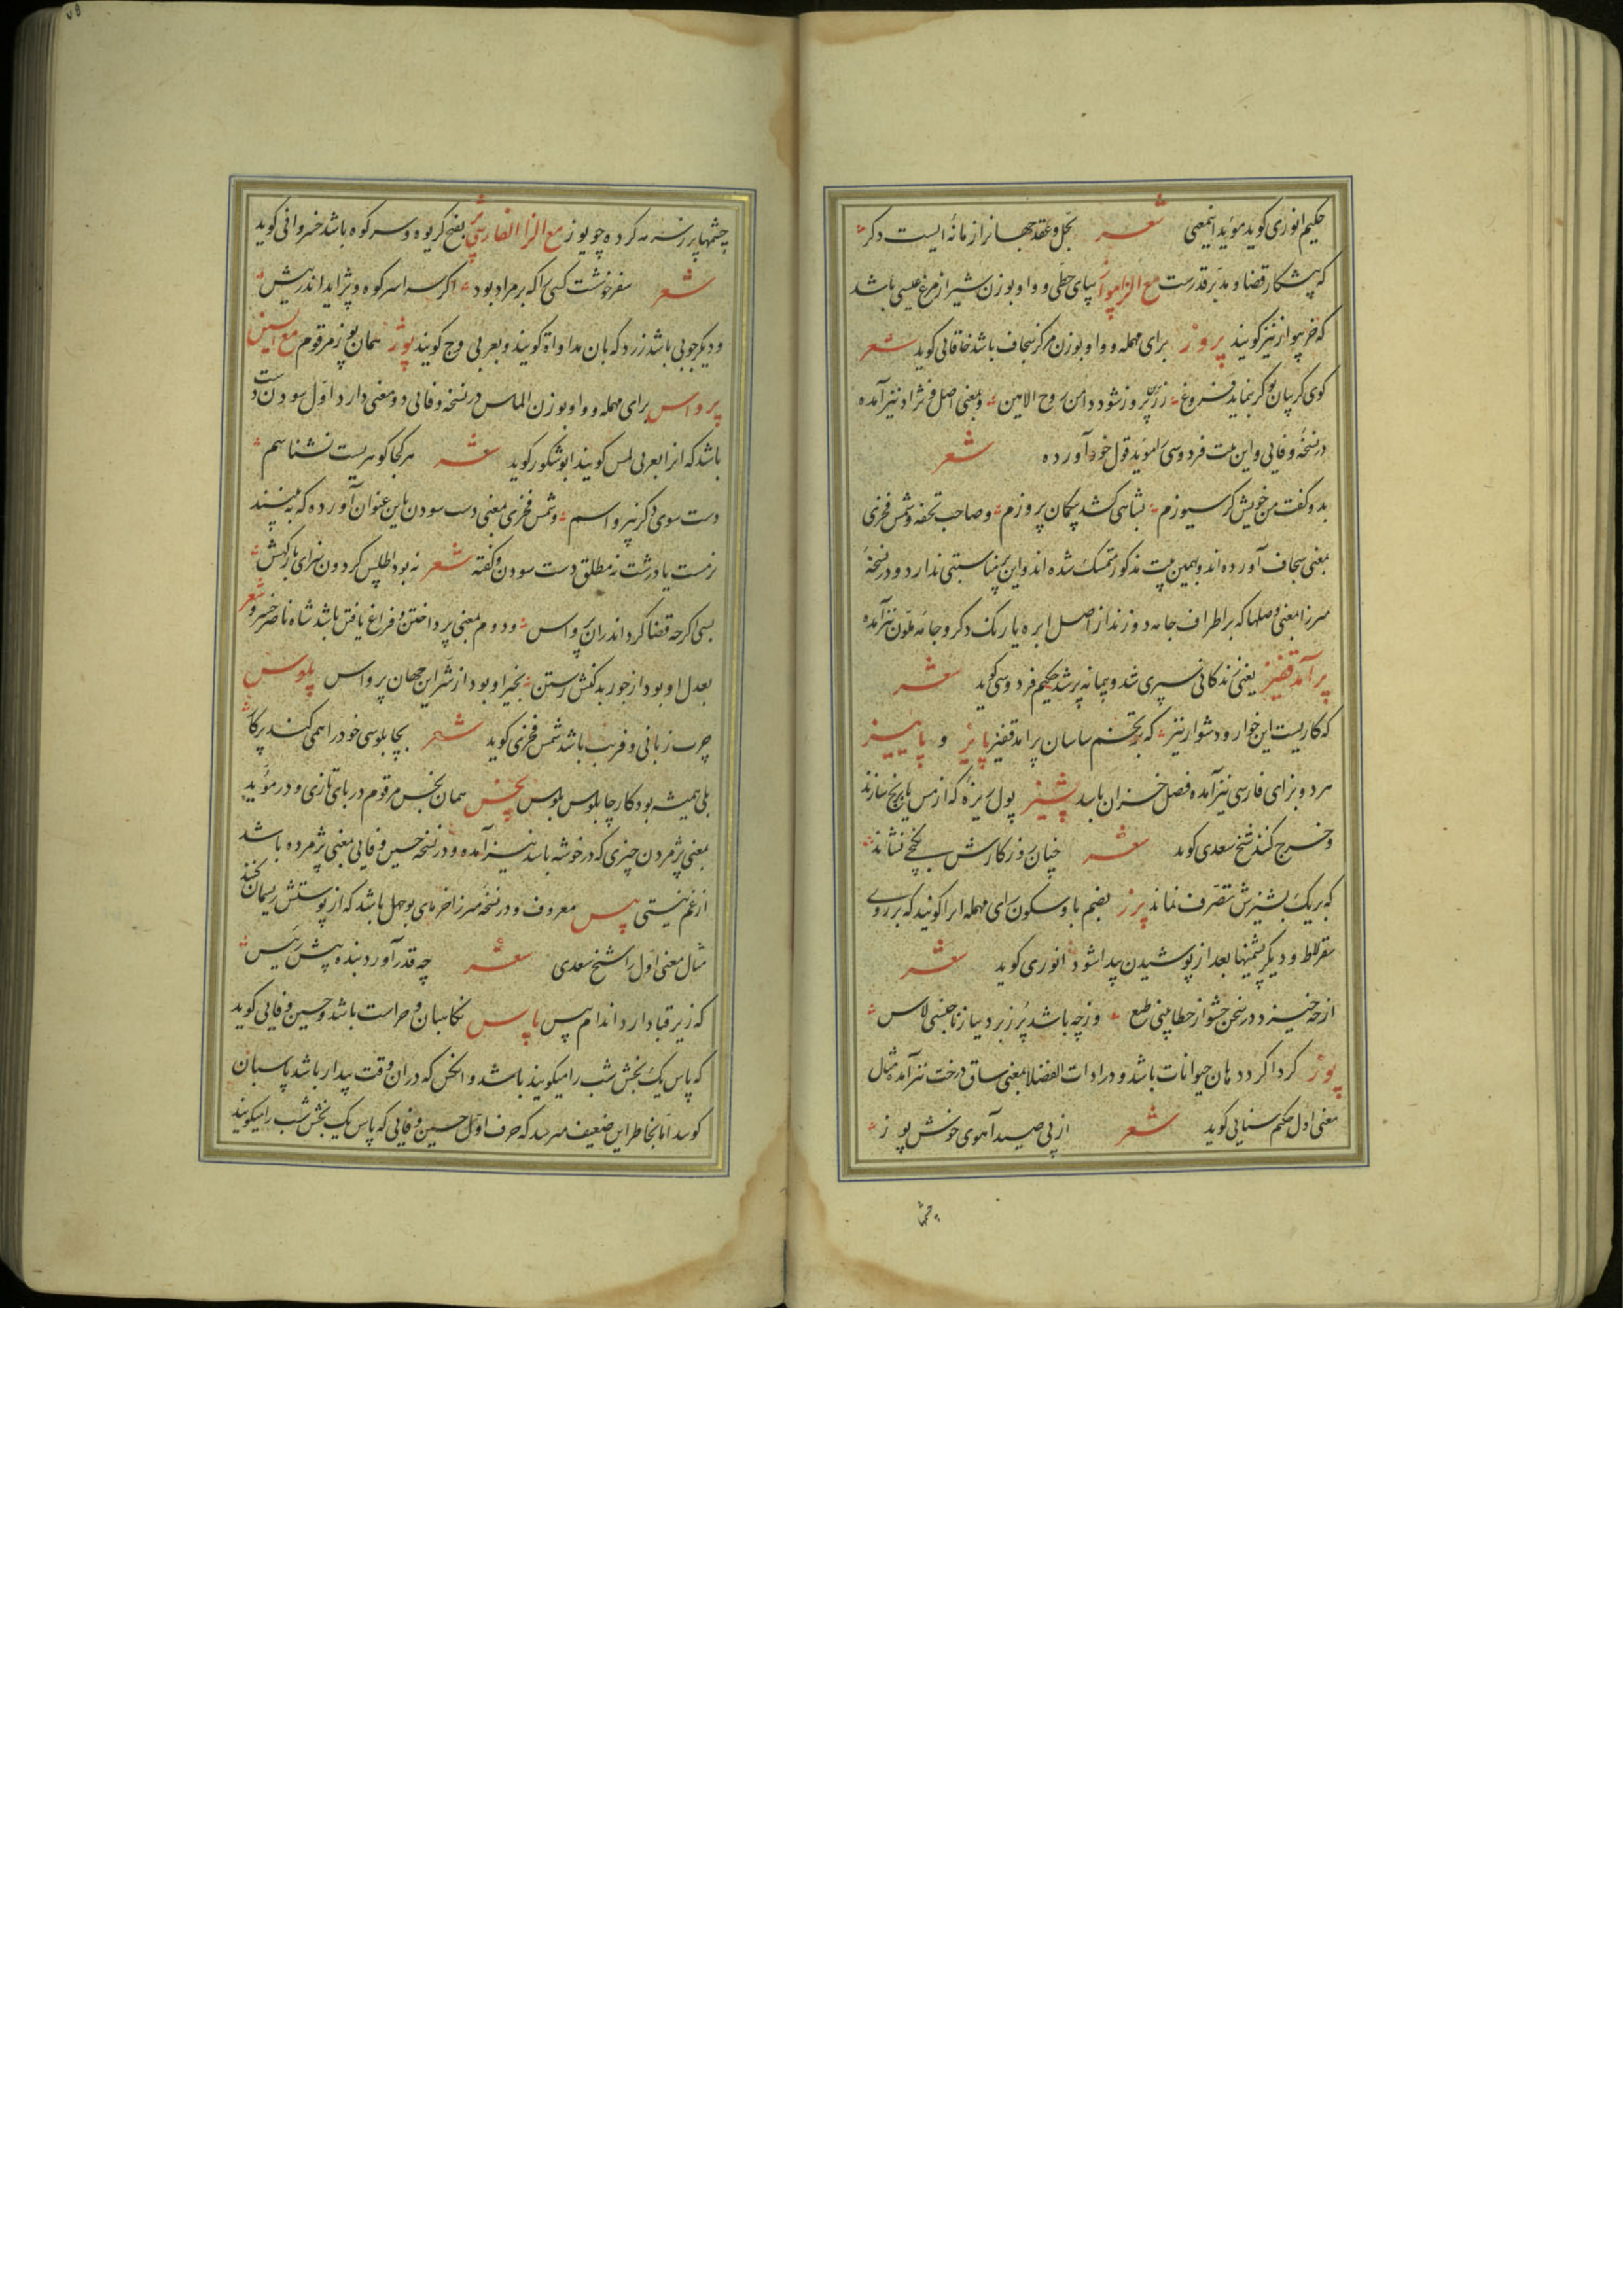 حکیم انوری کوید مؤید اینمعنی شعر بحل و عقد جهانرا زمانهٔ ایست دکر
که پیشکار قضا و مدبر قدرست مع الزا پیواز بپای حطی و واو بوزن شیراز مرغ عیسی باشد
که خربیواز نیز کویند پروز برای مهمله و واو بوزن مرکز سجاف باشد خاقانی کوید شعر
کوی کریبان تو کر بنماید فروغ زرپروز شود دامن روح الامین و بمعنی اصل و نژاد نیز آمده
در نسخهٔ وفایی و این بیت فردوسی را مؤید قول خود آورده شعر
بدو گفت من خویش کرسیوزم بشاهی کشد پیکان پروزم و صاحب تحفه و شمس فخری
بمعنی سجاف آورده اند و بهمین بیت مذکور متمسک شده اند و این مناسبتی ندارد و در نسخهٔ
میرزا بمعنی وصلها که بر اطراف جامه دوزند از اصل ابره یا رنک دکر و جامهٔ ملون نیز آمده
پر آمد قفیز یعنی زندکانی سپری شد و پیمانه پر شد حکیم فردوسی کوید شعر
که کاریست این خوار و دشوار نیز که بر تخم ساسان پر آمد قفیز پاییز و پاییز
هر دو بزای فارسی نیز آمده فصل خزان باشد پشیز پول ریزه که از مس یا برنج سازند
و خرج کنند شیخ سعدی کوید شعر چنان روزکارش بکنجی نشاند
که بر یک پشیزش تصرف نماند پرز بضم با و سکون رای مهمله انرا کویند که بر روی
سقرلاط و دیکر پشمینها بعد از پوشیدن پیدا شود انوری کوید شعر
از چه خیزد در سخن حشو از خطا بینی طبع وز چه باشد پرز بر دیبا ز ناجنسی لاس
پوز کرداکرد دهان حیوانات باشد و در ادات الفضلا بمعنی ساق درخت نیز آمده مثال
معنی اول حکیم سنایی کوید شعر از پی صید آهوی خوش پوز
چشمها
چشمها پر ز سرمه کرده چو یوز مع الزا الفارسی پژ بفتح کریوه و سر کوه باشد خسروانی کوید
شعر سفر خوشست کسی را که بر مراد بود اکر سراسر کوه و پژ آید اندر پیش
و دیکر چوبی باشد زرد که بان مداواة کویند و بعربی وج کویند پوژ همان پوز مرقوم مع السین
پرواس برای مهمله و واو بوزن الماس در نسخهٔ وفایی دو معنی دارد اول سودن دست
باشد که انرا بعربی لمس کویند ابوشکور کوید شعر هر کجا کوهریست نشناسم
دست سوی دکر نپرواسم و شمس فخری بمعنی دست سودن باین عنوان آورده که ببینند
نرمست یا درشت نه مطلق دست سودن و کفته شعر نه بود اطلس کردون سزای بارکهش
بسی اکرچه قضا کرد اندران پرواس و دوم بمعنی پرداختن و فراغ یافتن باشد شاه ناصر خسرو شعر
بعدل او بود از جور بدکنش رستن بخیر او بود از شر این جهان پرواس پلوس
چرب زبانی و فریب باشد شمس فخری کوید شعر بچابلوسی خود را همی کند پرکار
بلی همیشه بود کار چابلوس پلوس پخس همان بخس مرقوم در بای تازی و در مؤید
بمعنی پژمردن چیزی که در خوشه باشد نیز آمده و در نسخهٔ حسین وفایی بمعنی پژمرده باشد
از غم نیستی پیس معروف و در نسخهٔ میرزا خرمای بوجهل باشد که از پوستش ریسمان کنند
مثال معنی اول را شیخ سعدی شعر چه قدر آورد بنده پیش رئیس
که زیر قبا دارد اندام پیس پاس نکاهبان و حراست باشد و حسین وفایی کوید
که پاس یک بخش شب را میکویند باشد و انکس که دران وقت بیدار باشد پاسبان
کویند اما بخاطر این ضعیف میرسد که حرف اول حسین وفایی که پاس یک بخش شب را میکویند